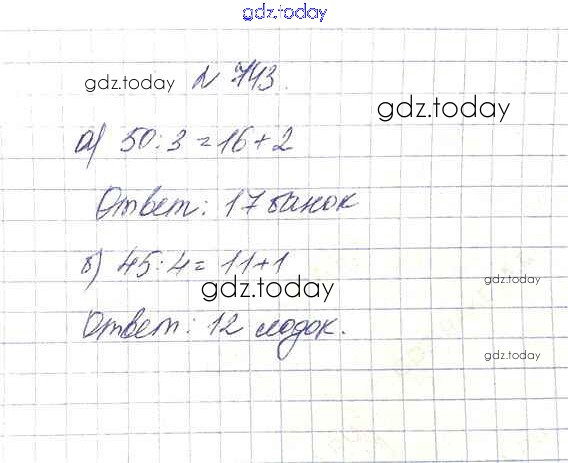 gdz.today
gdz.today № 743.
gdz.today
а) 50:3=16+2
Ответ: 17 банок
б) 45:4= 11+1
gdz.today
gdz.today
Ответ: 12 лодок.
gdz.today